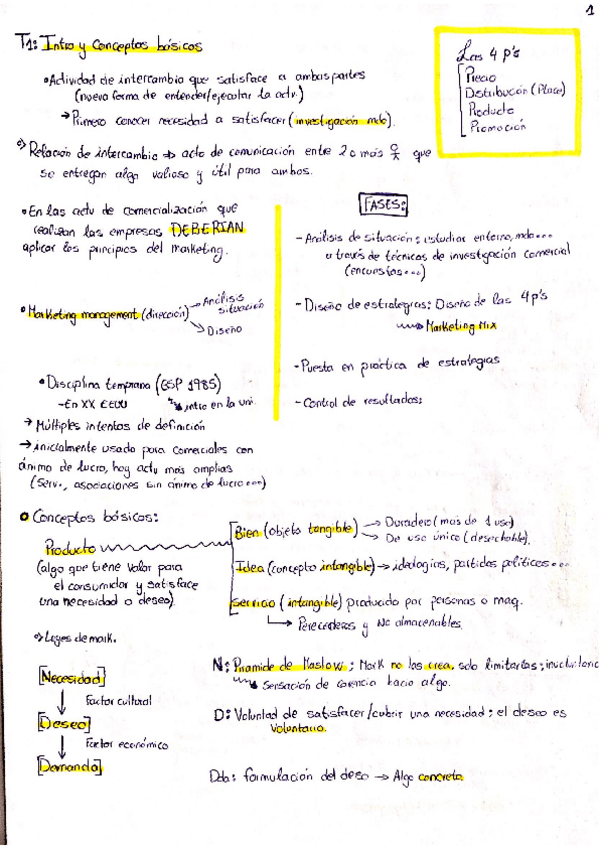 1
T1: Intro y conceptos básicos
Las 4 p's
Precio
Distribución (Place)
Producto
Promoción
•Actividad de intercambio que satisface a ambas partes
(nueva forma de entender/ejecutar la actv.)
→ Primero conocer necesidad a satisfacer (investigación mdo).
Relación de intercambio ⇒ acto de comunicación entre 2 o más que
se entregan algo valioso y útil para ambos.
•En las actv de comercialización que
realizan las empresas DEBERIAN
aplicar los principios del marketing.
•Marketing management (dirección)
→ Análisis situación
→ Diseño
•Disciplina temprana (ESP 1985)
-En XX EEUU
intro en la uni.
→ Múltiples intentos de definición
→ inicialmente usado para comerciales con
ánimo de lucro, hoy actv más amplias
(Serv., asociaciones sin ánimo de lucro...)
FASES:
-Análisis de situación: estudiar entorno, mdo...
a través de técnicas de investigación comercial
(encuestas...)
-Diseño de estrategias: Diseño de las 4p's
Marketing Mix
-Puesta en práctica de estrategias
-Control de resultados:
Conceptos básicos:
Producto
(algo que tiene valor para
el consumidor y satisface
una necesidad o deseo).
Bien (objeto tangible) → Duradero (mas de 1 uso)
→ De uso único (desechable).
Idea (concepto intangible) → ideologías, partidos políticos...
Servicio (intangible) producido por personas o maq.
→ Perecederos y No almacenables.
Leyes de mark.
[Necesidad]
↓ Factor cultural
[Deseo]
↓ Factor económico
[Demanda]
N: Piramide de Maslow; Mark no las crea, solo
Sensación de carencia hacia algo.
D: Voluntad de satisfacer/cubrir una necesidad; el deseo es
Voluntario.
Dda: formulación del deso → Algo concreto